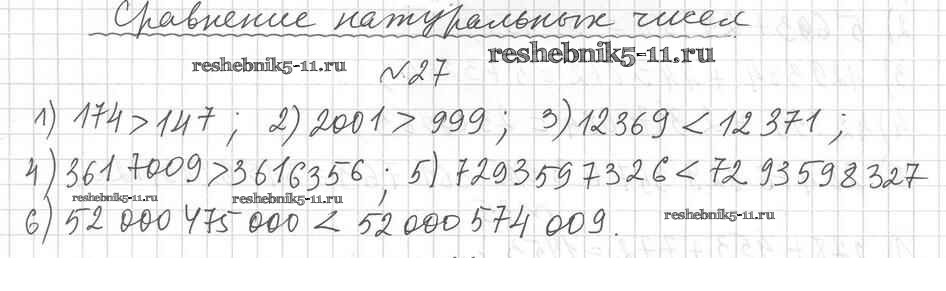 Сравнение натуральных чисел
reshebnik5-11.ru №27 reshebnik5-11.ru
1) 174 > 147 ; 2) 2001 > 999 ; 3) 12369 < 12371 ;
4) 3617009 > 3616356 ; 5) 7293597326 < 7293598327
reshebnik5-11.ru reshebnik5-11.ru
6) 52 000 475 000 < 52 000 574 009. reshebnik5-11.ru